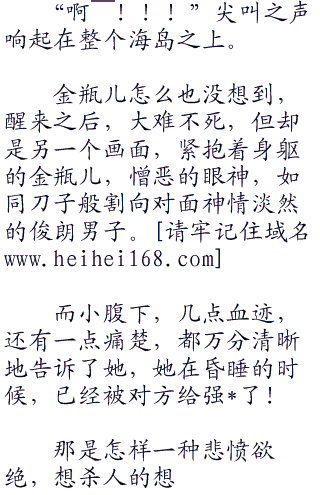 “啊——！！！”尖叫之声
响起在整个海岛之上。
金瓶儿怎么也没想到，
醒来之后，大难不死，但却
是另一个画面，紧抱着身躯
的金瓶儿，憎恶的眼神，如
同刀子般割向对面神情淡然
的俊朗男子。[请牢记住域名
www.heihei168.com]
而小腹下，几点血迹，
还有一点痛楚，都万分清晰
地告诉了她，她在昏睡的时
候，已经被对方给强*了！
那是怎样一种悲愤欲
绝，想杀人的想